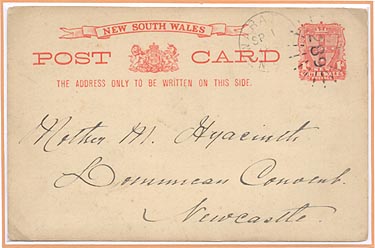 NEW SOUTH WALES
POST CARD
THE ADDRESS ONLY TO BE WRITTEN ON THIS SIDE.
Mother M. Hyacinth
Dominican Convent.
Newcastle.